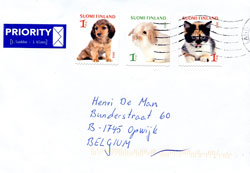 PRIORITY
SUOMI FINLAND
SUOMI FINLAND
SUOMI FINLAND
1
1
1
Henri De Man
Bunderstraat 60
B-1745 Opwijk
BELGIUM